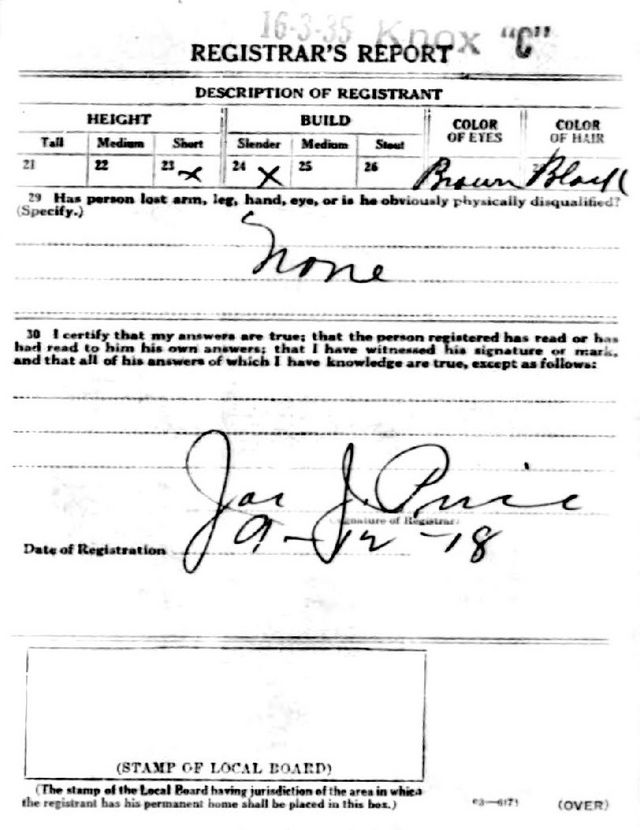 16-3-35 Knox "C"
REGISTRAR'S REPORT
DESCRIPTION OF REGISTRANT
HEIGHT BUILD COLOR OF EYES COLOR OF HAIR
Tall Medium Short Slender Medium Stout
21 22 23 x 24 x 25 26 Brown Black
29 Has person lost arm, leg, hand, eye, or is he obviously physically disqualified?
(Specify.)
None
30 I certify that my answers are true; that the person registered has read or has
had read to him his own answers; that I have witnessed his signature or mark,
and that all of his answers of which I have knowledge are true, except as follows:
Jas J. Price
Signature of Registrar
Date of Registration 9-12-18
(STAMP OF LOCAL BOARD)
(The stamp of the Local Board having jurisdiction of the area in which
the registrant has his permanent home shall be placed in this box.)
03—6171 (OVER)